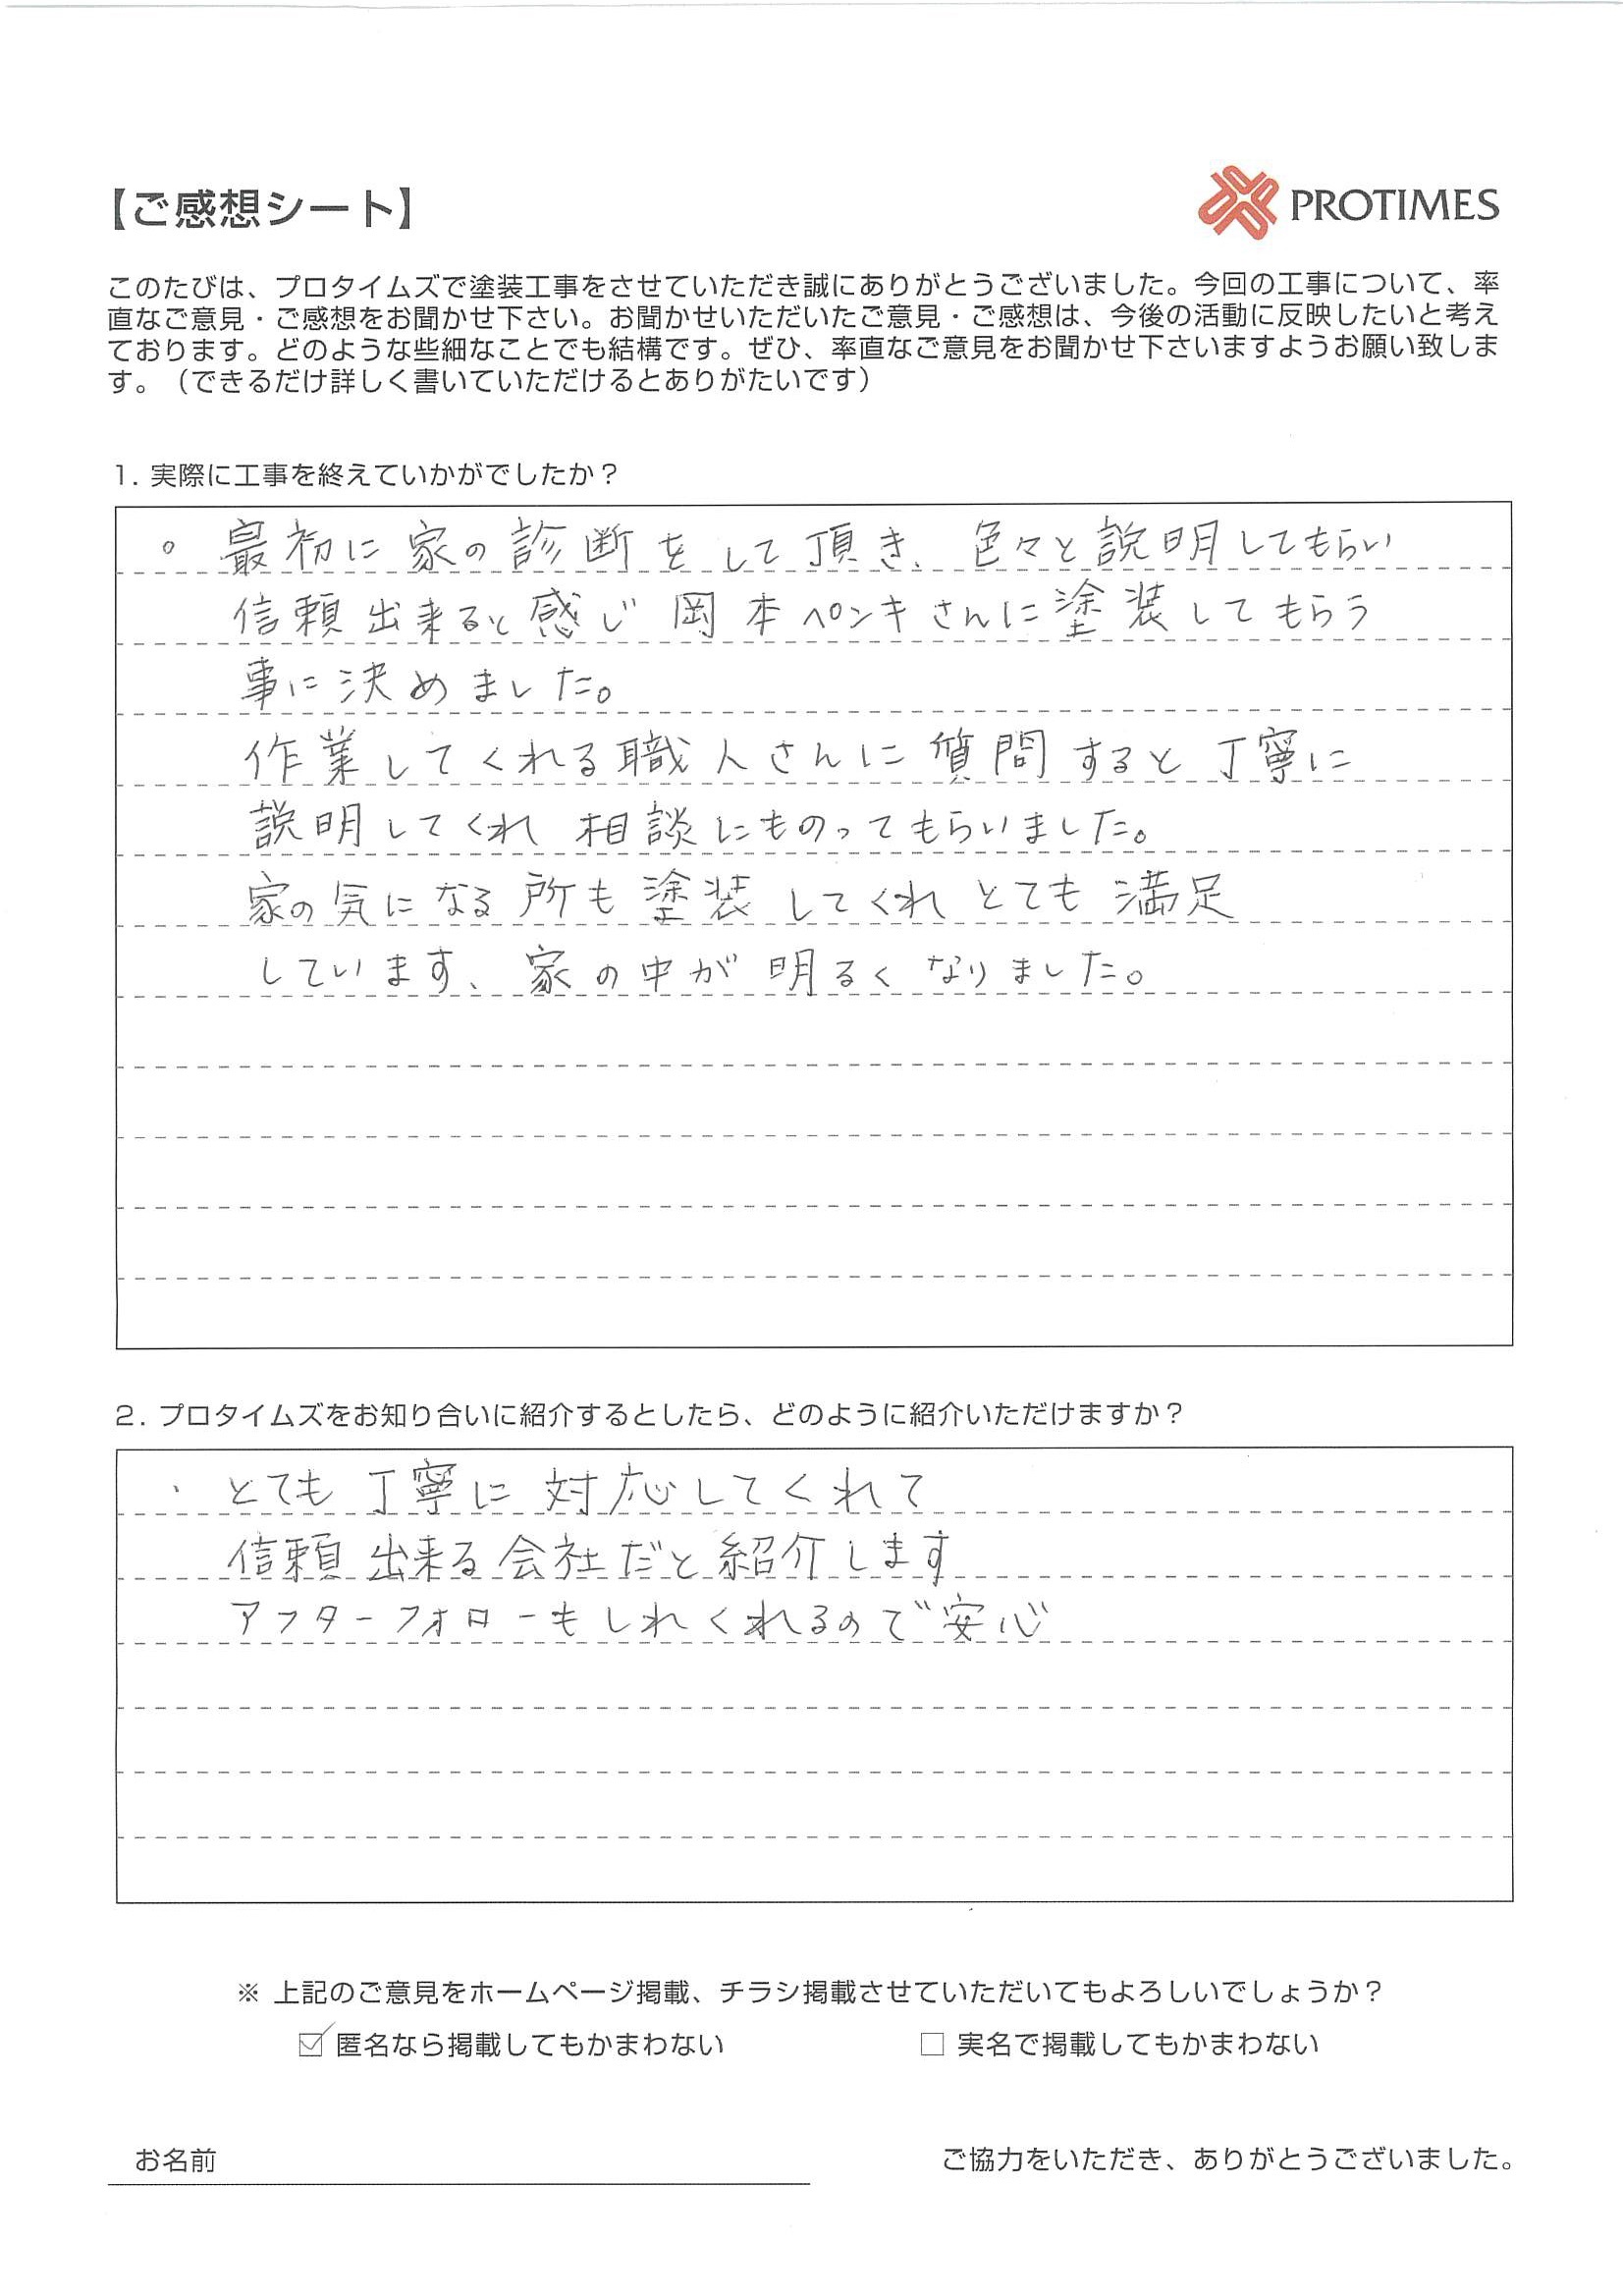 【ご感想シート】
PROTIMES
このたびは、プロタイムズで塗装工事をさせていただき誠にありがとうございました。今回の工事について、率
直なご意見・ご感想をお聞かせ下さい。お聞かせいただいたご意見・ご感想は、今後の活動に反映したいと考え
ております。どのような些細なことでも結構です。ぜひ、率直なご意見をお聞かせ下さいますようお願い致しま
す。（できるだけ詳しく書いていただけるとありがたいです）
1. 実際に工事を終えていかがでしたか？
。最初に家の診断をして頂き、色々と説明してもらい
信頼出来ると感じ 岡本ペンキさんに塗装してもらう
事に決めました。
作業してくれる職人さんに質問すると丁寧に
説明してくれ 相談にものってもらいました。
家の気になる所も塗装してくれとても満足
しています、家の中が明るくなりました。
2. プロタイムズをお知り合いに紹介するとしたら、どのように紹介いただけますか？
・とても丁寧に対応してくれて
信頼出来る会社だと紹介します
アフターフォローもしれくれるので安心
※ 上記のご意見をホームページ掲載、チラシ掲載させていただいてもよろしいでしょうか？
☑ 匿名なら掲載してもかまわない □ 実名で掲載してもかまわない
お名前 ご協力をいただき、ありがとうございました。